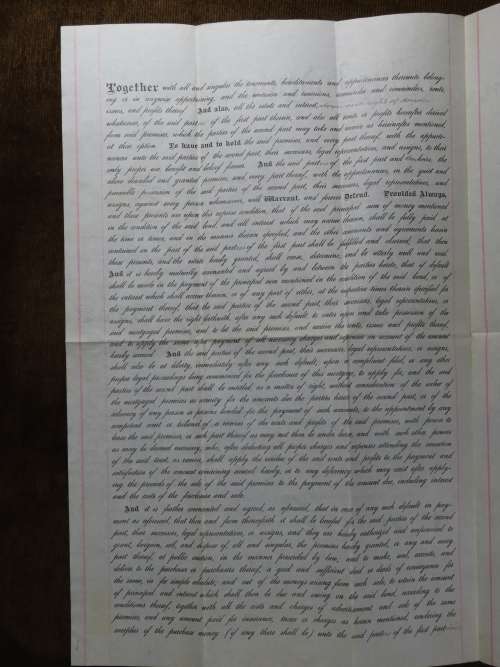 Together with all and singular the tenements, hereditaments and appurtenances thereunto belong-
ing or in anywise appertaining, and the reversion and reversions, remainder and remainders, rents,
issues, and profits thereof. And also, all the estate and interest,
whatsoever, of the said part of the first part therein, and also all rents or profits hereafter derived
from said premises, which the parties of the second part may take and receive as hereinafter mentioned,
at their option. To have and to hold the said premises, and every part thereof, with the appurte-
nances unto the said parties of the second part, their successors, legal representatives, and assigns, to their
only proper use benefit and behoof forever. And the said part of the first part and heirs, the
above described and granted premises, and every part thereof, with the appurtenances, in the quiet and
peaceable possession of the said parties of the second part, their successors, legal representatives, and
assigns, against every person whomsoever, will Warrant, and forever Defend. Provided Always,
and these presents are upon this express condition, that if the said principal sum of money mentioned
in the condition of the said bond, and all interest which may accrue thereon, shall be fully paid at
the time or times, and in the manner therein specified, and the other covenants and agreements herein
contained on the part of the said part of the first part shall be fulfilled and observed, that then
these presents, and the estate hereby granted, shall cease, determine, and be utterly null and void.
And it is hereby mutually covenanted and agreed by and between the parties hereto, that if default
shall be made in the payment of the principal sum mentioned in the condition of the said bond, or of
the interest which shall accrue thereon, or of any part of either, at the respective times therein specified for
the payment thereof, that the said parties of the second part, their successors, legal representatives, or
assigns, shall have the right forthwith, after any such default, to enter upon and take possession of the
said mortgaged premises, and to let the said premises, and receive the rents, issues and profits thereof,
and to apply the same after payment of all necessary charges and expenses on account of the amount
hereby secured. And the said parties of the second part, their successors, legal representatives, or assigns,
shall also be at liberty, immediately after any such default, upon a complaint filed, or any other
proper legal proceedings being commenced for the foreclosure of this mortgage, to apply for, and the said
parties of the second part shall be entitled as a matter of right, without consideration of the value of
the mortgaged premises as security for the amounts due the parties hereto of the second part, or of the
solvency of any person or persons bonded for the payment of such amounts, to the appointment by any
competent court or tribunal, of a receiver of the rents and profits of the said premises, with power to
lease the said premises, or such part thereof as may not then be under lease, and with such other powers
as may be deemed necessary, who, after deducting all proper charges and expenses attending the execution
of the said trust, as receiver, shall apply the residue of the said rents and profits to the payment and
satisfaction of the amount remaining secured hereby, or to any deficiency which may exist after apply-
ing the proceeds of the sale of the said premises to the payment of the amount due, including interest
and the costs of the foreclosure and sale.
And it is further covenanted and agreed, as aforesaid, that in case of any such default in pay-
ment as aforesaid, that then and from thenceforth it shall be lawful for the said parties of the second
part, their successors, legal representatives, or assigns, and they are hereby authorized and empowered to
grant, bargain, sell, and dispose of, all, and singular, the premises hereby granted, or any and every
part thereof, at public auction, in the manner prescribed by law, and to make, seal, execute, and
deliver to the purchaser or purchasers thereof, a good and sufficient deed or deeds of conveyance for
the same, in fee simple absolute; and out of the moneys arising from such sale, to retain the amount
of principal and interest which shall then be due and owing on the said bond, according to the
conditions thereof, together with all the costs and charges of advertisement and sale of the same
premises, and any amount paid for insurance, taxes or charges as herein mentioned, rendering the
overplus of the purchase money (if any there shall be) unto the said part of the first part